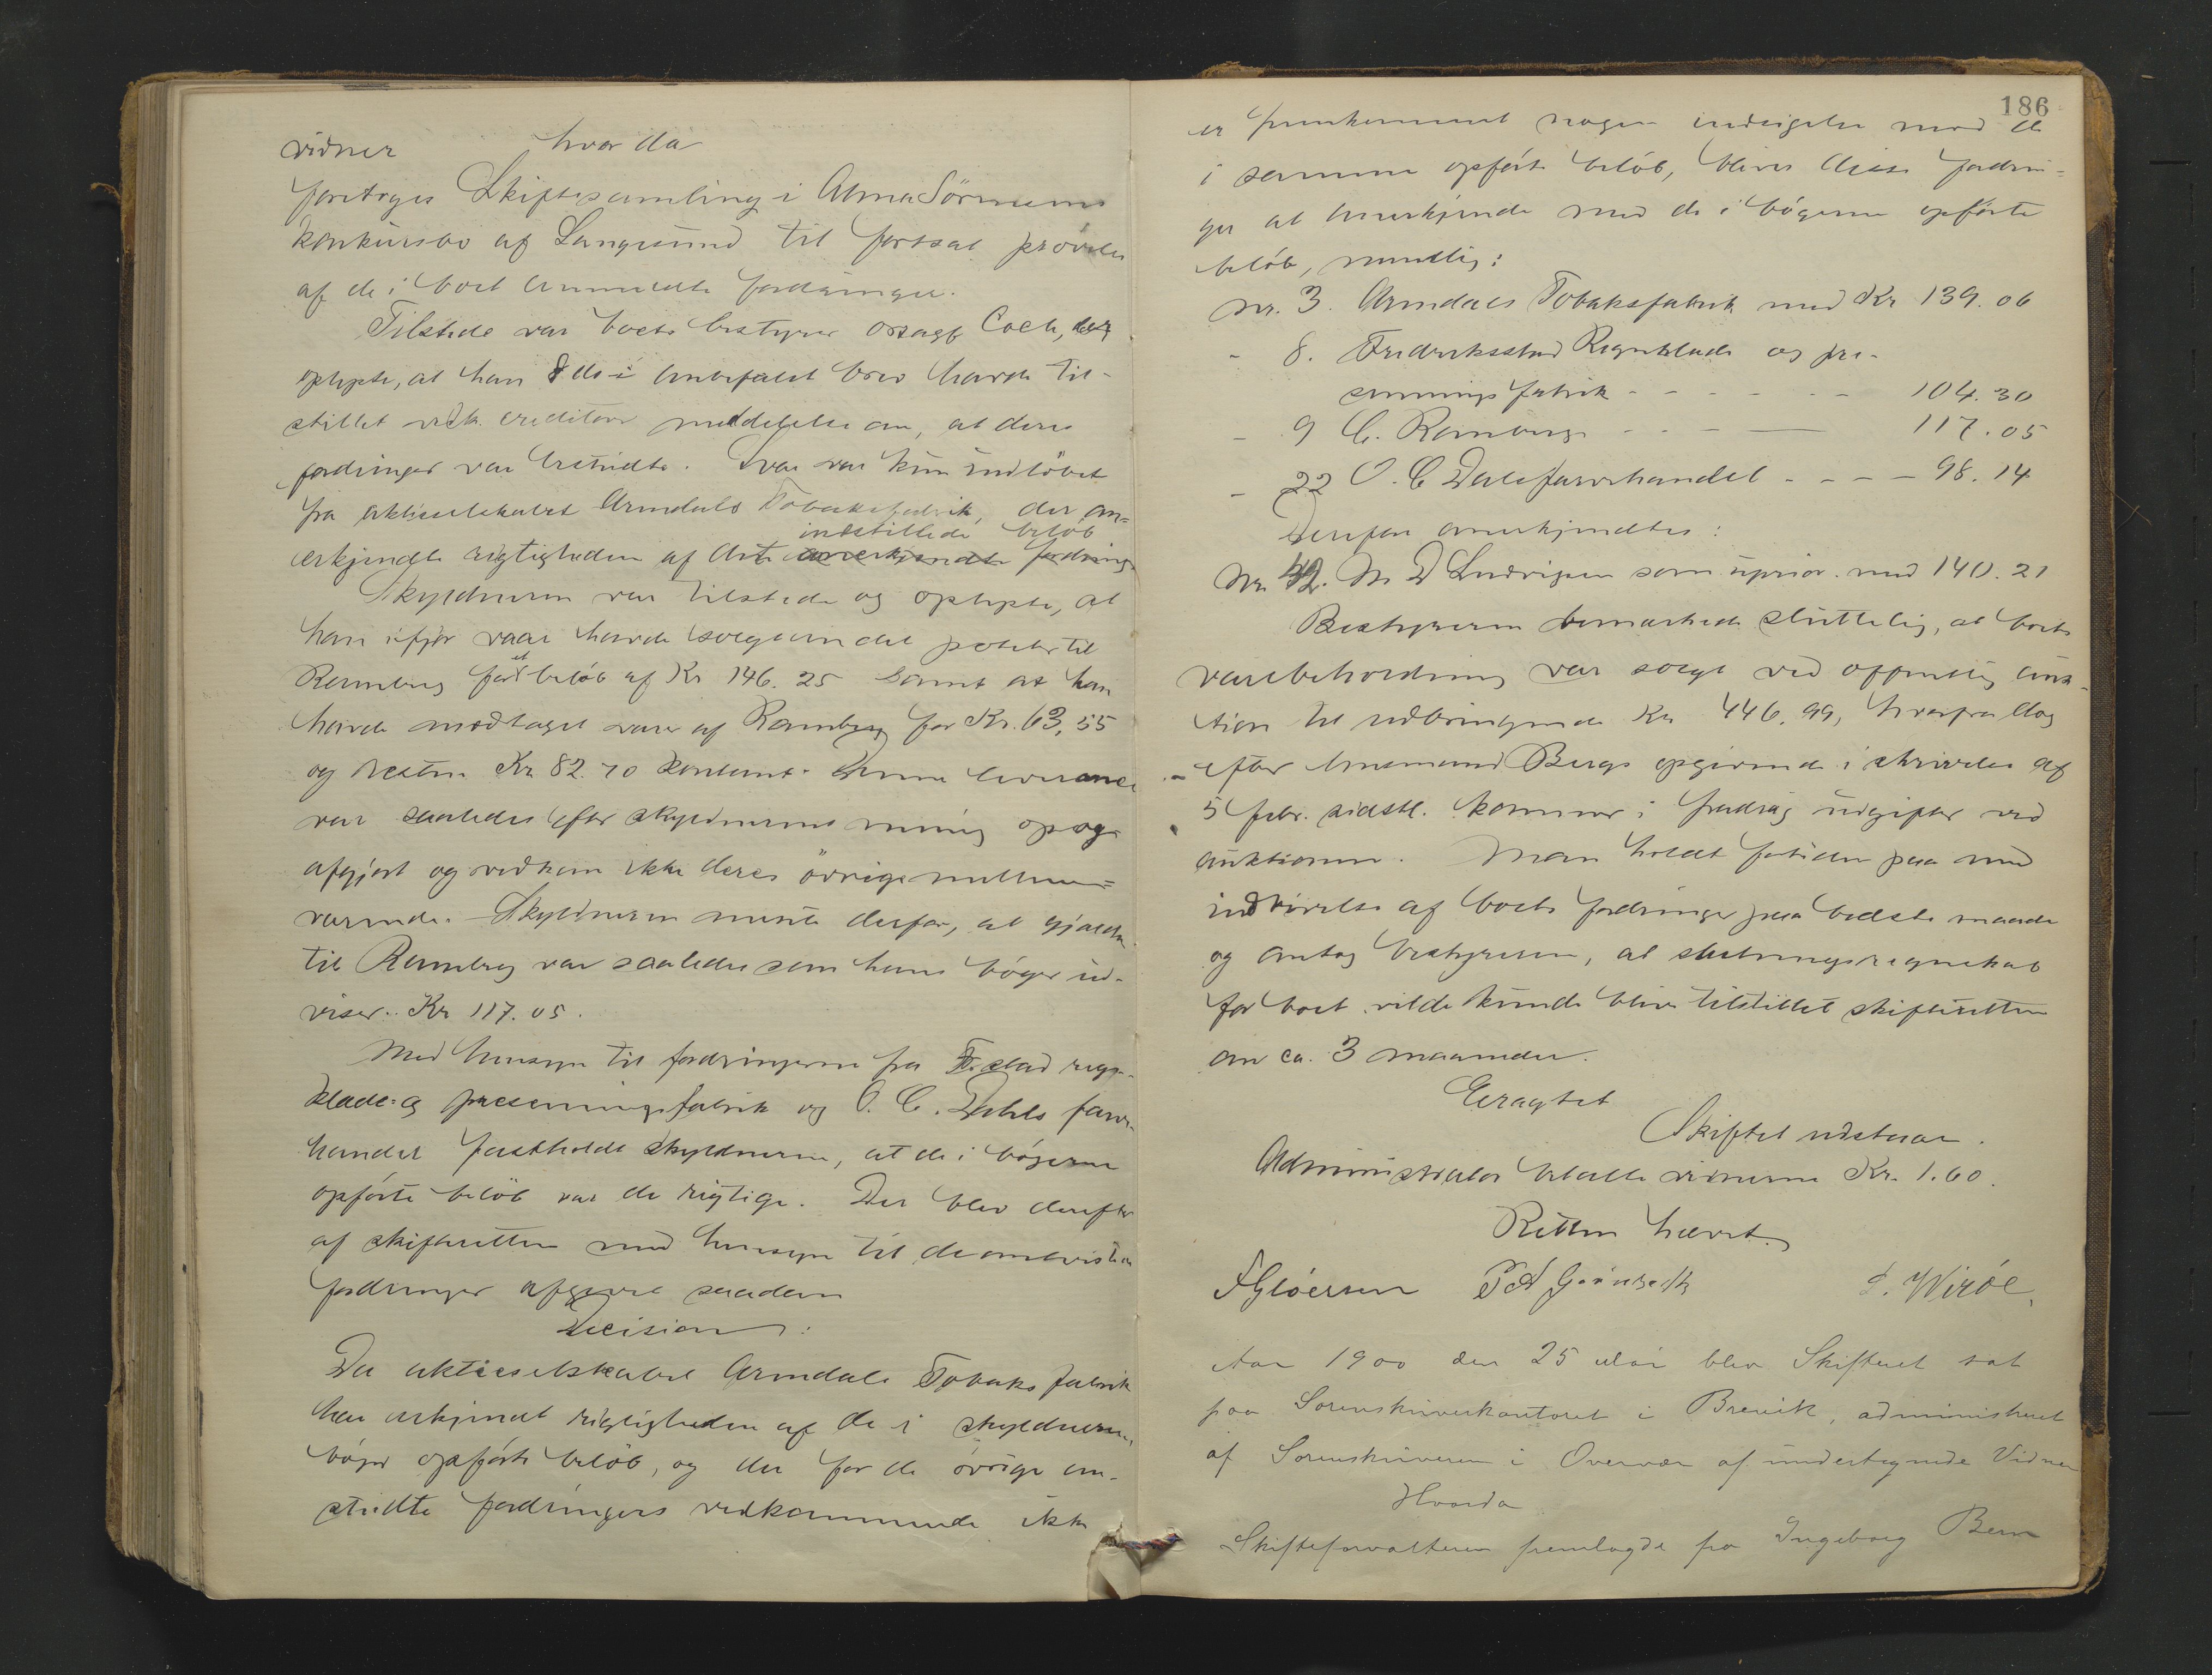 vidner hvorda
foretoges Skiftesamling i Alma Sörensens
konkursbo af Langesund til fortsat prøvelse
af de i boet anmeldte fordringer.
Tilstede var boets bestyrer orsagf Coch, der
oplyste, at han 8 ds i anbefalet brev havde til-
stillet vedk. creditorer meddelelse om, at deres
fordringer var bestridte. Svar var kun indløbet
fra aktieselskabet Arendals Tobaksfabrik, der an-
indstillede beløb
erkjendte rigtigheden af det anerkjendte fordring
Skyldneren var tilstede og oplyste, at
han ifjor vaar havde solgt en del poteter til
Ramberg for et beløb af Kr 146.25 samt at han
havde modtaget varer af Ramberg for Kr. 63,55
og resten Kr. 82.70 kontant. Denne leverance
var saaledes efter skyldnerens mening opog
afgjort og vedkom ikke deres övrige mellem-
værende. Skyldneren mente derfor, at gjælden
til Ramberg var saaledes som hans bøger ud-
viser. Kr 117.05.
Med hensyn til fordringerne fra F.stad regn-
klæde- og presenningsfabrik og O. C. Dahls farve-
handel fastholdt skyldneren, at de i bøgerne
opførte beløb var de rigtige. Der blev derefter
af skifteretten med hensyn til de ombestridte
fordringer afgivet saadan
Decision:
Da aktieselskabet Arendals Tobaksfabrik
har erkjendt rigtigheden af de i skyldnerens
bøger opførte beløb, og der for de övrige om-
stridte fordringers vedkommende ikke
186
er fremkommet nogen indsigelse mod de
i samme opførte beløb, bliver disse fordrin-
ger at anerkjende med de i bøgerne opførte
beløb, nemlig:
Nr. 3. Arendals Tobaksfabrik med Kr 139.06
- 8. Fredriksstad Regnklæde og pre-
sennings fabrik - - - - - 104.30
- 9 C. Ramberg - - - 117.05
- 22 O. C Dahls farvehandel - - - - 98.14
Derefter anerkjendtes:
Nr. 42. M D Ludvigsen som uprior. med 140.21
Bestyreren bemærkede sluttelig, at boets
varebeholdning var solgt ved offentlig auk-
tion til udbringende Kr 446.99, hvorfra dog
efter lensmand Bergs opgivende i skrivelse af
5 febr. sidstl. kommer i fradrag udgifter ved
auktionen. Man holdt fortiden paa med
inddrivelse af boets fordringer paa bedste maade
og antog bestyreren, at slutningsregnskab
for boet vilde kunde blive tilstillet skifteretten
om ca. 3 maaneder.
Eragtet
Skiftet udstaar.
Administrator betalte vidnerne Kr. 1.60.
Retten hævet.
F Gløersen P A Grönbech S. Wirøe
Aar 1900 den 25 Mai blev Skifteret sat
paa Sorenskriverkontoret i Brevik, administreret
af Sorenskriveren i Overvær af undertegnede Vidner
Hvorda
Skifteforvalteren fremlagde fra Ingeborg Bern